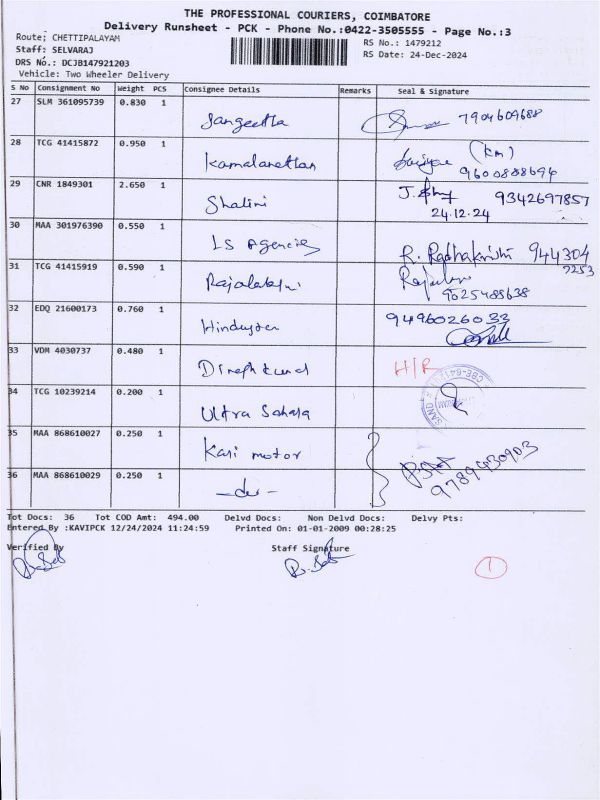 THE PROFESSIONAL COURIERS, COIMBATORE
Delivery Runsheet - PCK - Phone No.:0422-3505555 - Page No.:3
Route: CHETTIPALAYAM
RS No.: 1479212
Staff: SELVARAJ
RS Date: 24-Dec-2024
DRS No.: DCJB147921203
Vehicle: Two Wheeler Delivery
S No Consignment No Weight PCS Consignee Details Remarks Seal & Signature
27 SLM 361095739 0.830 1 Sangeetha 7904609688
28 TCG 41415872 0.950 1 (km)
9600888694
29 CNR 1849301 2.650 1 Shalini 9342697857
24.12.24
30 MAA 301976390 0.550 1 LS Agencies R. Radhakrishi 944304
7253
31 TCG 41415919 0.590 1
9025488638
32 EDQ 21600173 0.760 1 Hindusten 9496026033
33 VDM 4030737 0.480 1 H/R
34 TCG 10239214 0.200 1 Ultra Sahara
35 MAA 868610027 0.250 1 Kari motor
9789430903
36 MAA 868610029 0.250 1 -do-
Tot Docs: 36 Tot COD Amt: 494.00 Delvd Docs: Non Delvd Docs: Delvy Pts:
Entered By :KAVIPCK 12/24/2024 11:24:59 Printed On: 01-01-2009 00:28:25
Verified By Staff Signature
1